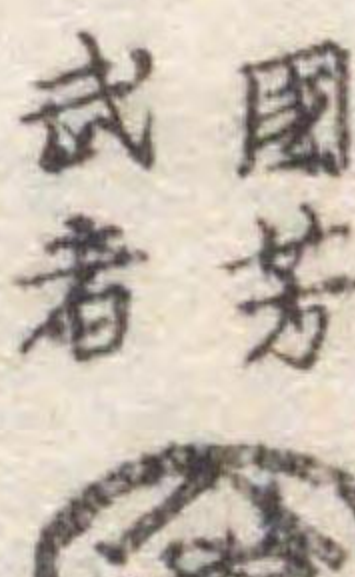 國芳
武者